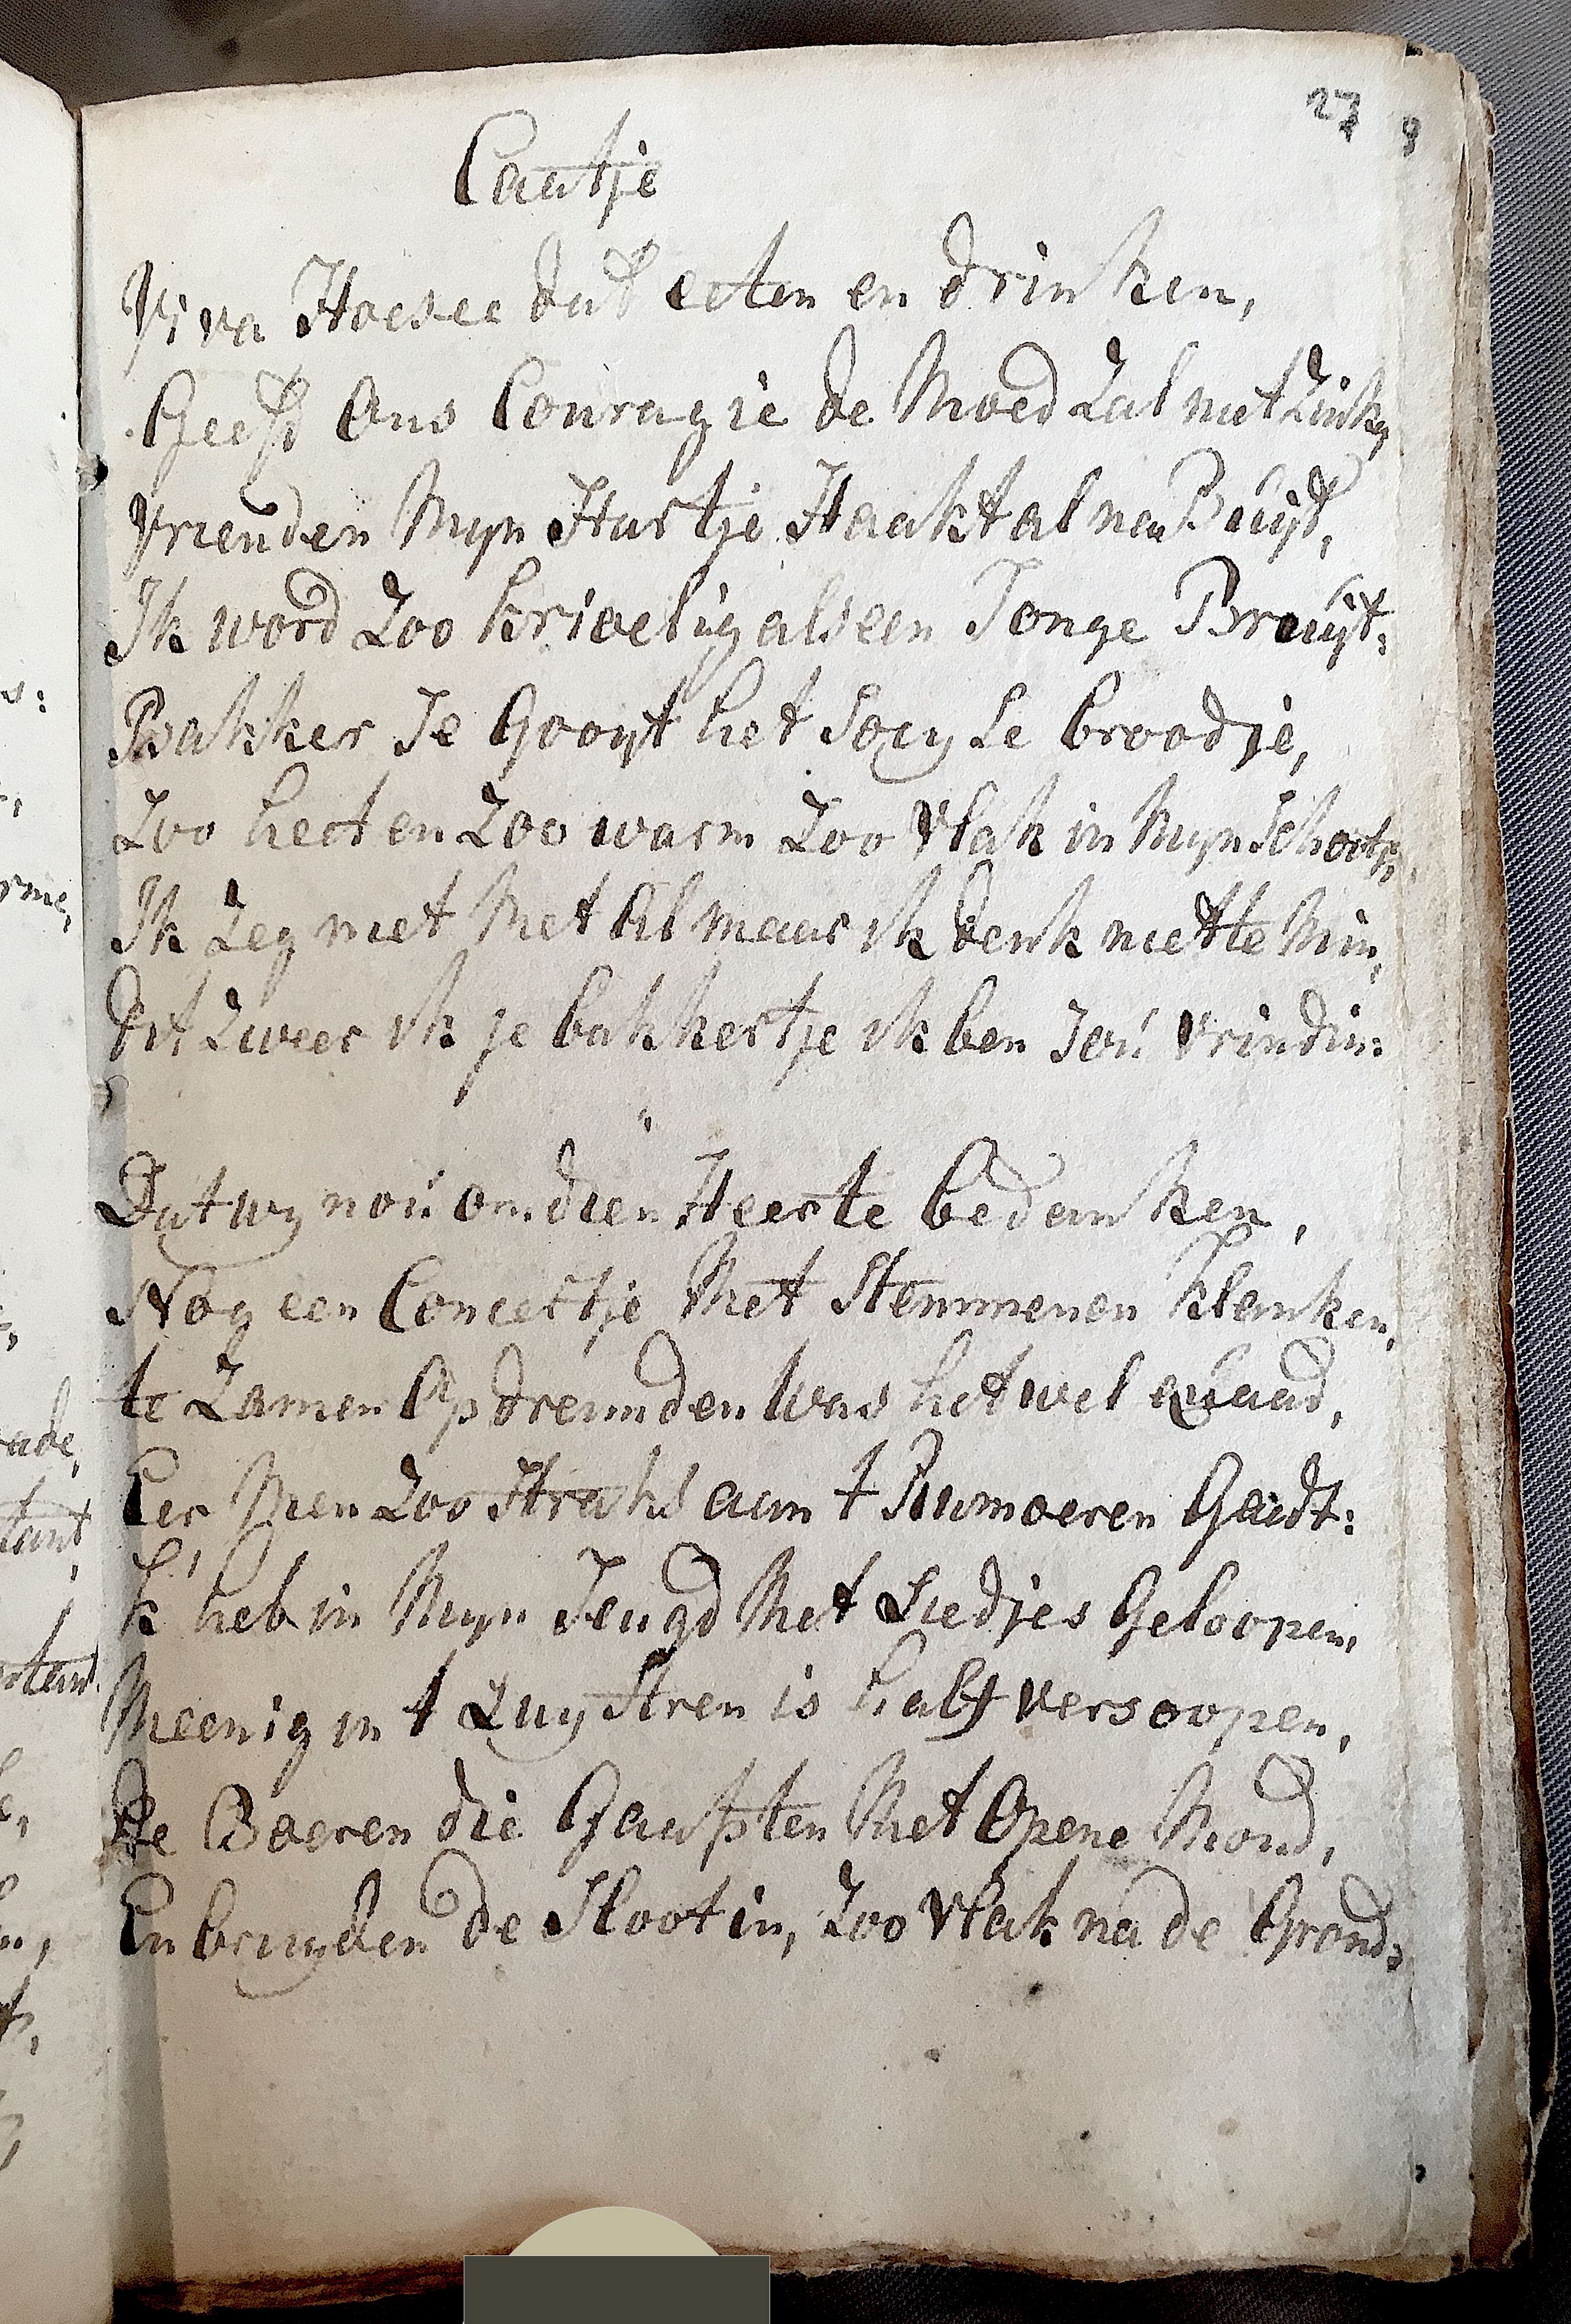 27 9
Caatje
Viva Hoesee dat eeten en drinken,
Geeft Ons Couragie de Moed Zal niet Zinken
Vrienden Myn Hartje Haakt al na Buijt,
Ik word Zoo krioelig als een Jonge Bruijt:
Bakker Je Gooyt het Soeyse broodje,
Zoo heet en Zoo warm Zoo Vlak in Myn Schootje,
Ik Zeg niet Met Al maar ik denk niet te Min,
Dit Zweer ik je bakkertje ik ben Jou Vrindin:
Dat wy nou om dien Heer te bedanken,
Nog een Concertje Met Stemmen en Klanken,
te Zamen Opdreunden Was het wel quaad,
Eer Men Zoo Straks aan t Rumoeren Gaidt:
k' heb in Myn Jeugd Met Liedjes Geloopen,
Meenig in t Luystren is half versoopen,
De Boeren die Gaapten Met Opene Mond,
En bruyden de Sloot in, Zoo Vlak na de Grond:
s:
rme,
ade,
tant
stant